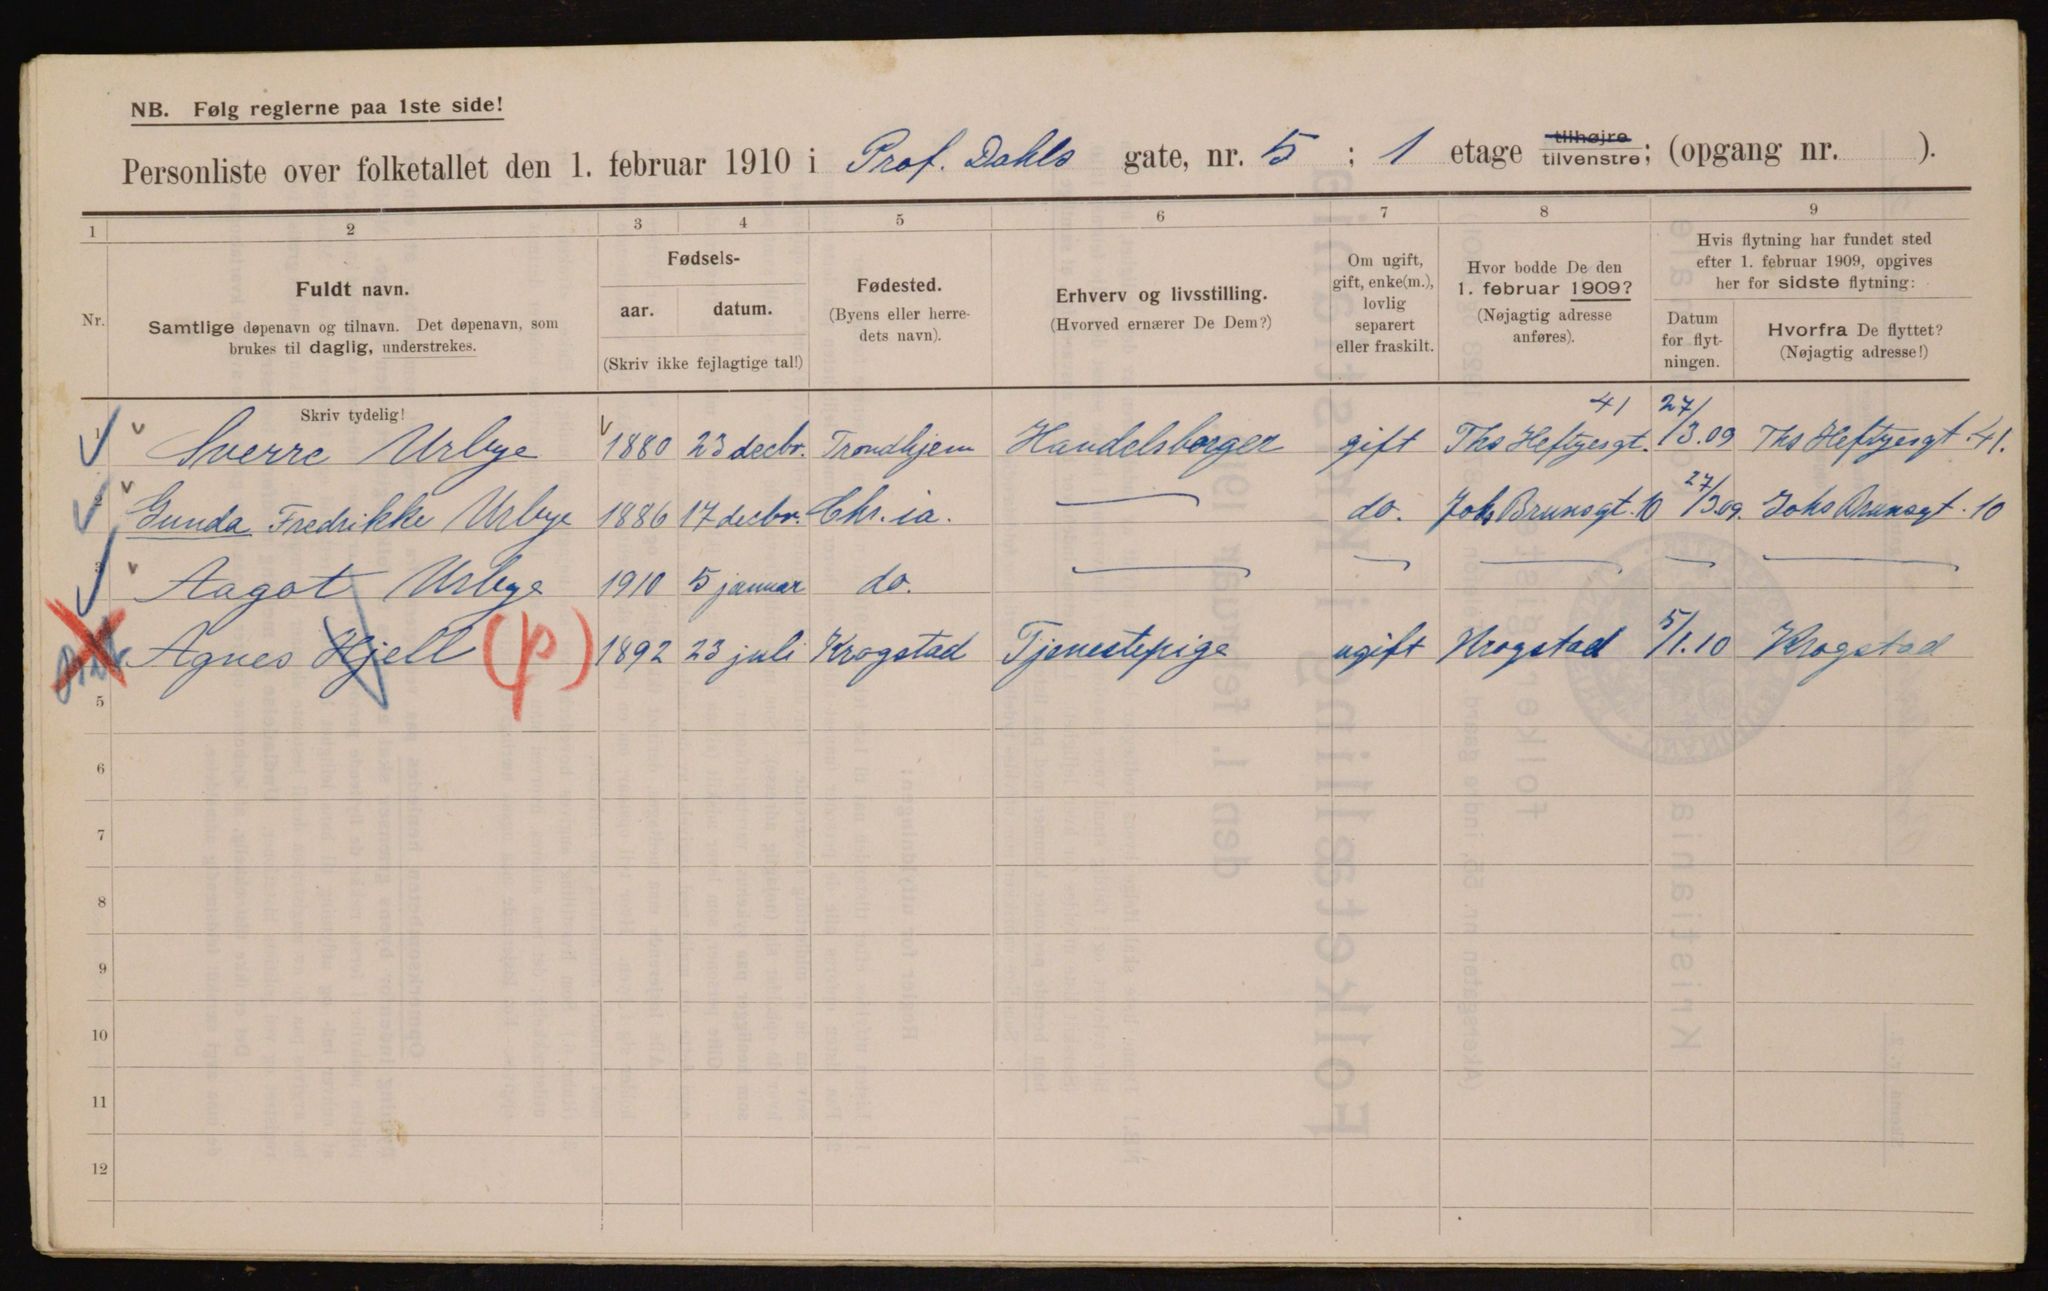 NB. Følg reglerne paa 1ste side!
Personliste over folketallet den 1. februar 1910 i Prof. Dahls gate, nr. 5 ; 1 etage tilhøjre tilvenstre; (opgang nr. ).
1 2 3 4 5 6 7 8 9
Nr.
Fuldt navn.
Samtlige døpenavn og tilnavn. Det døpenavn, som
brukes til daglig, understrekes.
Skriv tydelig!
Fødsels-
aar. datum.
(Skriv ikke fejlagtige tal!)
Fødested.
(Byens eller herre-
dets navn).
Erhverv og livsstilling.
(Hvorved ernærer De Dem?)
Om ugift,
gift, enke(m.),
lovlig
separert
eller fraskilt.
Hvor bodde De den
1. februar 1909?
(Nøjagtig adresse
anføres).
Hvis flytning har fundet sted
efter 1. februar 1909, opgives
her for sidste flytning:
Datum
for flyt-
ningen.
Hvorfra De flyttet?
(Nøjagtig adresse!)
1 Sverre Urbye 1880 23 decbr. Trondhjem Handelsborger gift Ths Heftyesgt. 41 27/3.09 Ths Heftyesgt. 41.
2 Gunda Fredrikke Urbye 1886 17 decbr. Chr.ia. — do. Johs Brunsgt. 10 27/3.09. Johs Brunsgt. 10
3 Aagot Urbye 1910 5 januar do. — — — — —
Agnes Hjell (p) 1892 23 juli Krogstad Tjenestepige ugift Krogstad 5/1.10 Krogstad
5
6
7
8
9
10
11
12